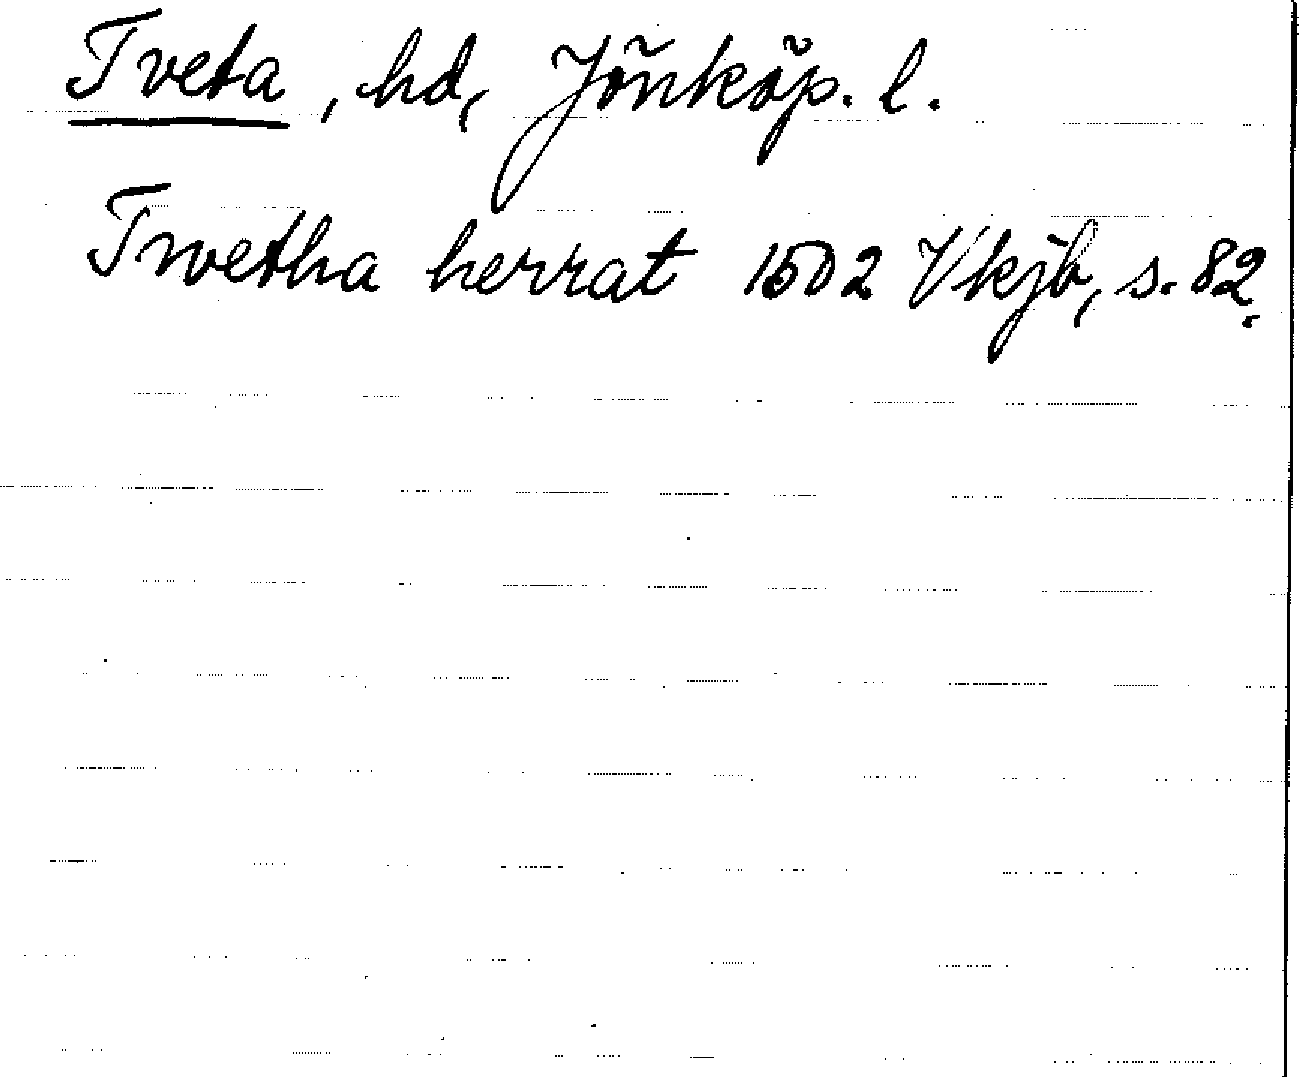 Tveta, hd, Jönköp. l.
Twetha herrat 1502 Vkjb, s. 82.